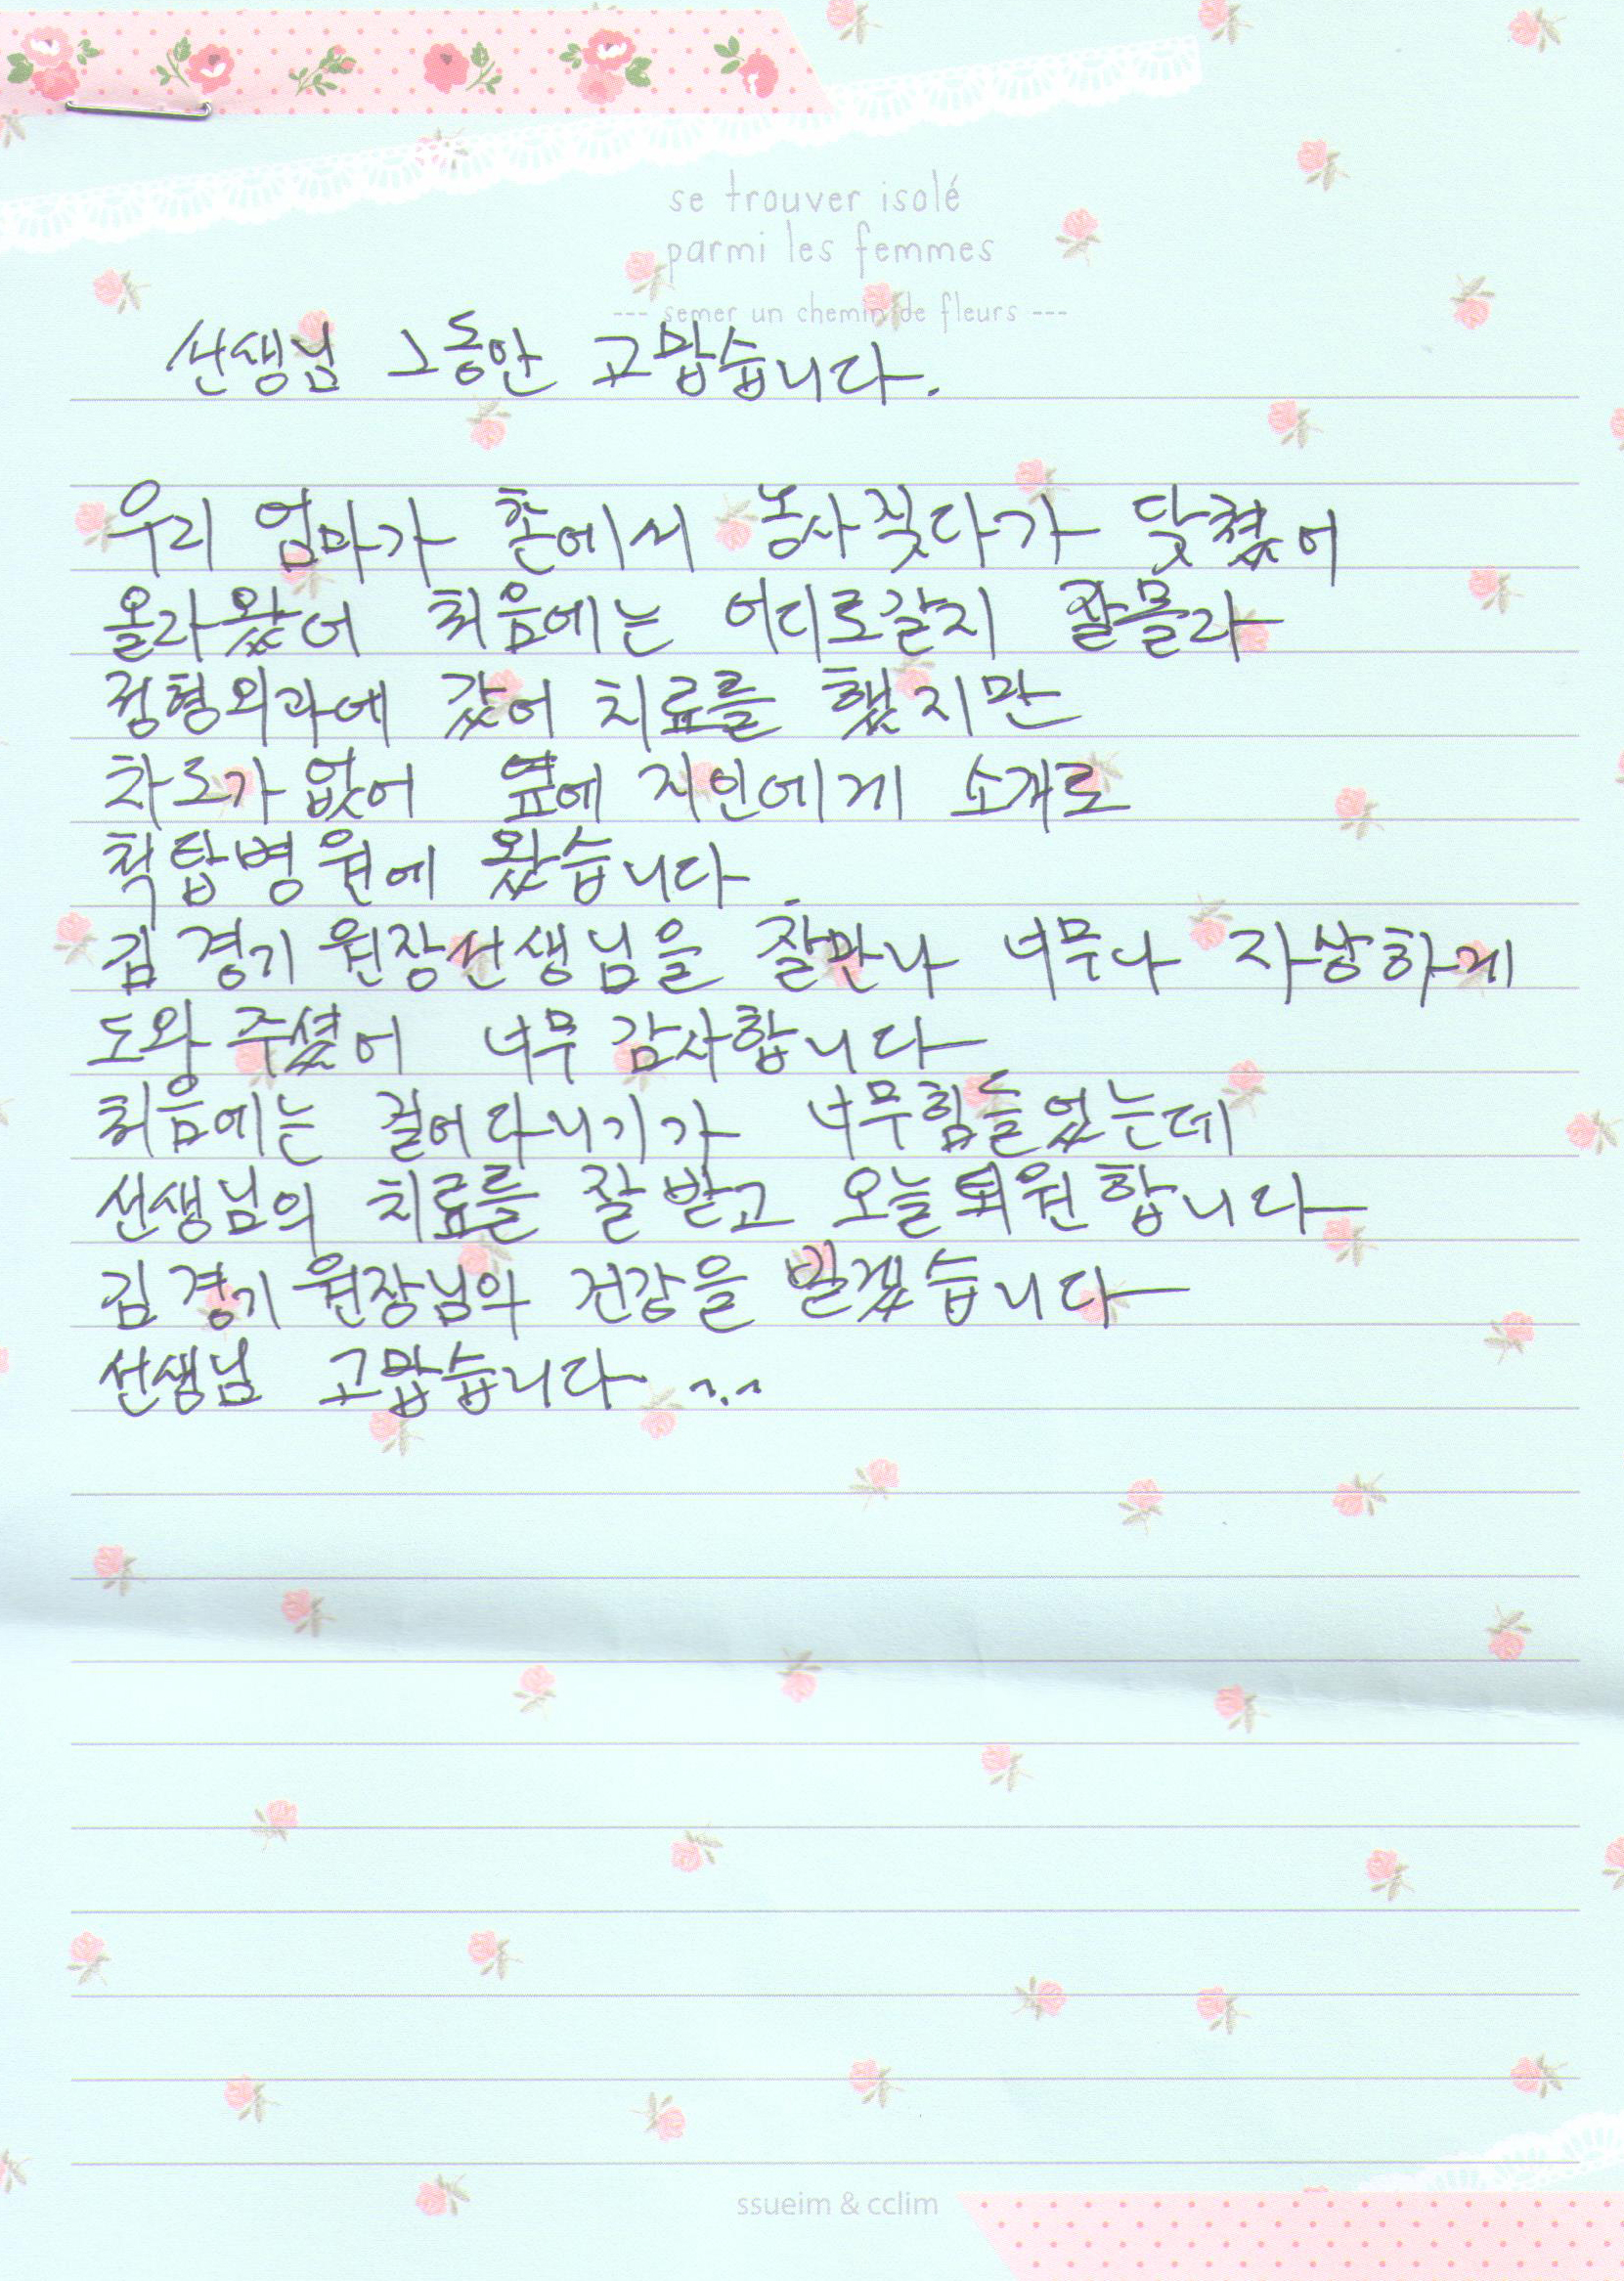 se trouver isolé
parmi les femmes
--- semer un chemin de fleurs ---
선생님 그동안 고맙습니다.
우리 엄마가 촌에서 농사짖다가 닻쳤어
올라왔어 처음에는 어디로갈지 잘몰라
정형외과에 갔어 치료를 했지만
차도가 없어 옆에 지인에게 소개로
척탑병원에 왔습니다
김경기 원장선생님을 잘만나 너무나 자상하게
도와 주셨어 너무 감사합니다
처음에는 걸어다니기가 너무힘들었는데
선생님의 치료를 잘 받고 오늘퇴원합니다
김경기 원장님의 건강을 빌겠습니다
선생님 고맙습니다 ^.^
ssueim & cclim